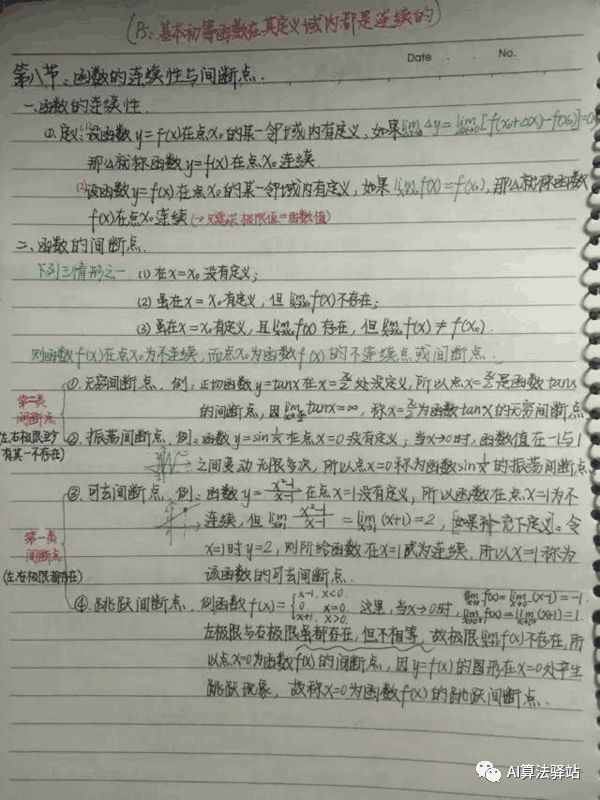 (Ps:基本初等函数在其定义域内都是连续的)
Date . . No.
第八节:函数的连续性与间断点.
一、函数的连续性.
①.定义:⑴设函数y=f(x)在点x₀的某一邻域内有定义,如果lim Δy=lim[f(x₀+Δx)-f(x₀)]=0
那么就称函数y=f(x)在点x₀连续.
⑵设函数y=f(x)在点x₀的某一邻域内有定义,如果lim f(x)=f(x₀),那么就称函数
f(x)在点x₀连续(→只需求极限值=函数值)
二、函数的间断点.
下列三情形之一 (1)在x=x₀没有定义;
(2)虽在x=x₀有定义,但lim f(x)不存在;
(3)虽在x=x₀有定义,且lim f(x)存在,但lim f(x)≠f(x₀).
则函数f(x)在点x₀为不连续,而点x₀为函数f(x)的不连续点或间断点.
第二类
间断点
(左右极限至少
有其一不存在)
①.无穷间断点.例:正切函数y=tanx在x=π/2处没定义,所以点x=π/2是函数tanx
的间断点,因lim tanx=∞,称x=π/2为函数tanx的无穷间断点
②.振荡间断点.例:函数y=sin1/x在点x=0没有定义;当x→0时,函数值在-1与1
之间变动无限多次,所以点x=0称为函数sin1/x的振荡间断点
第一类
间断点
(左右极限都存在)
③.可去间断点.例:函数y=x²-1/x-1在点x=1没有定义,所以函数在点x=1为不
连续,但lim x²-1/x-1=lim(x+1)=2,[如果补充下定义]:令
x=1时y=2,则所给函数在x=1成为连续.所以x=1称为
该函数的可去间断点.
④.跳跃间断点.例函数f(x)={x-1, x<0. 0 x=0. x+1, x>0. 这里,当x→0时,lim f(x)=lim(x-1)=-1. lim f(x)=lim(x+1)=1.
左极限与右极限虽都存在,但不相等,故极限lim f(x)不存在,所
以点x=0为函数f(x)的间断点,因y=f(x)的图形在x=0处产生
跳跃现象,故称x=0为函数f(x)的跳跃间断点.
AI算法驿站